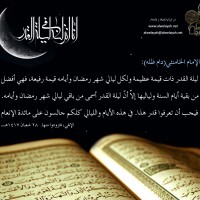 إنا أنزلناه في ليلة القدر
الإمام الخامنئي (دام ظله):
ليلة القدر ذات قيمة عظيمة ولكل ليالي شهر رمضان وأيامه قيمة رفيعة، فهي أفضل
من بقية أيام السنة ولياليها إلاّ أنّ ليلة القدر أسمى من باقي ليالي شهر رمضان وأيامه.
فيجب أن تعرفوا قدر هذا. في هذه الأيام والليالي كلكم جالسون على مائدة الإنعام
الإلهي، فتزودوا منها. ٢٨ شعبان ١٤١٧هـ.